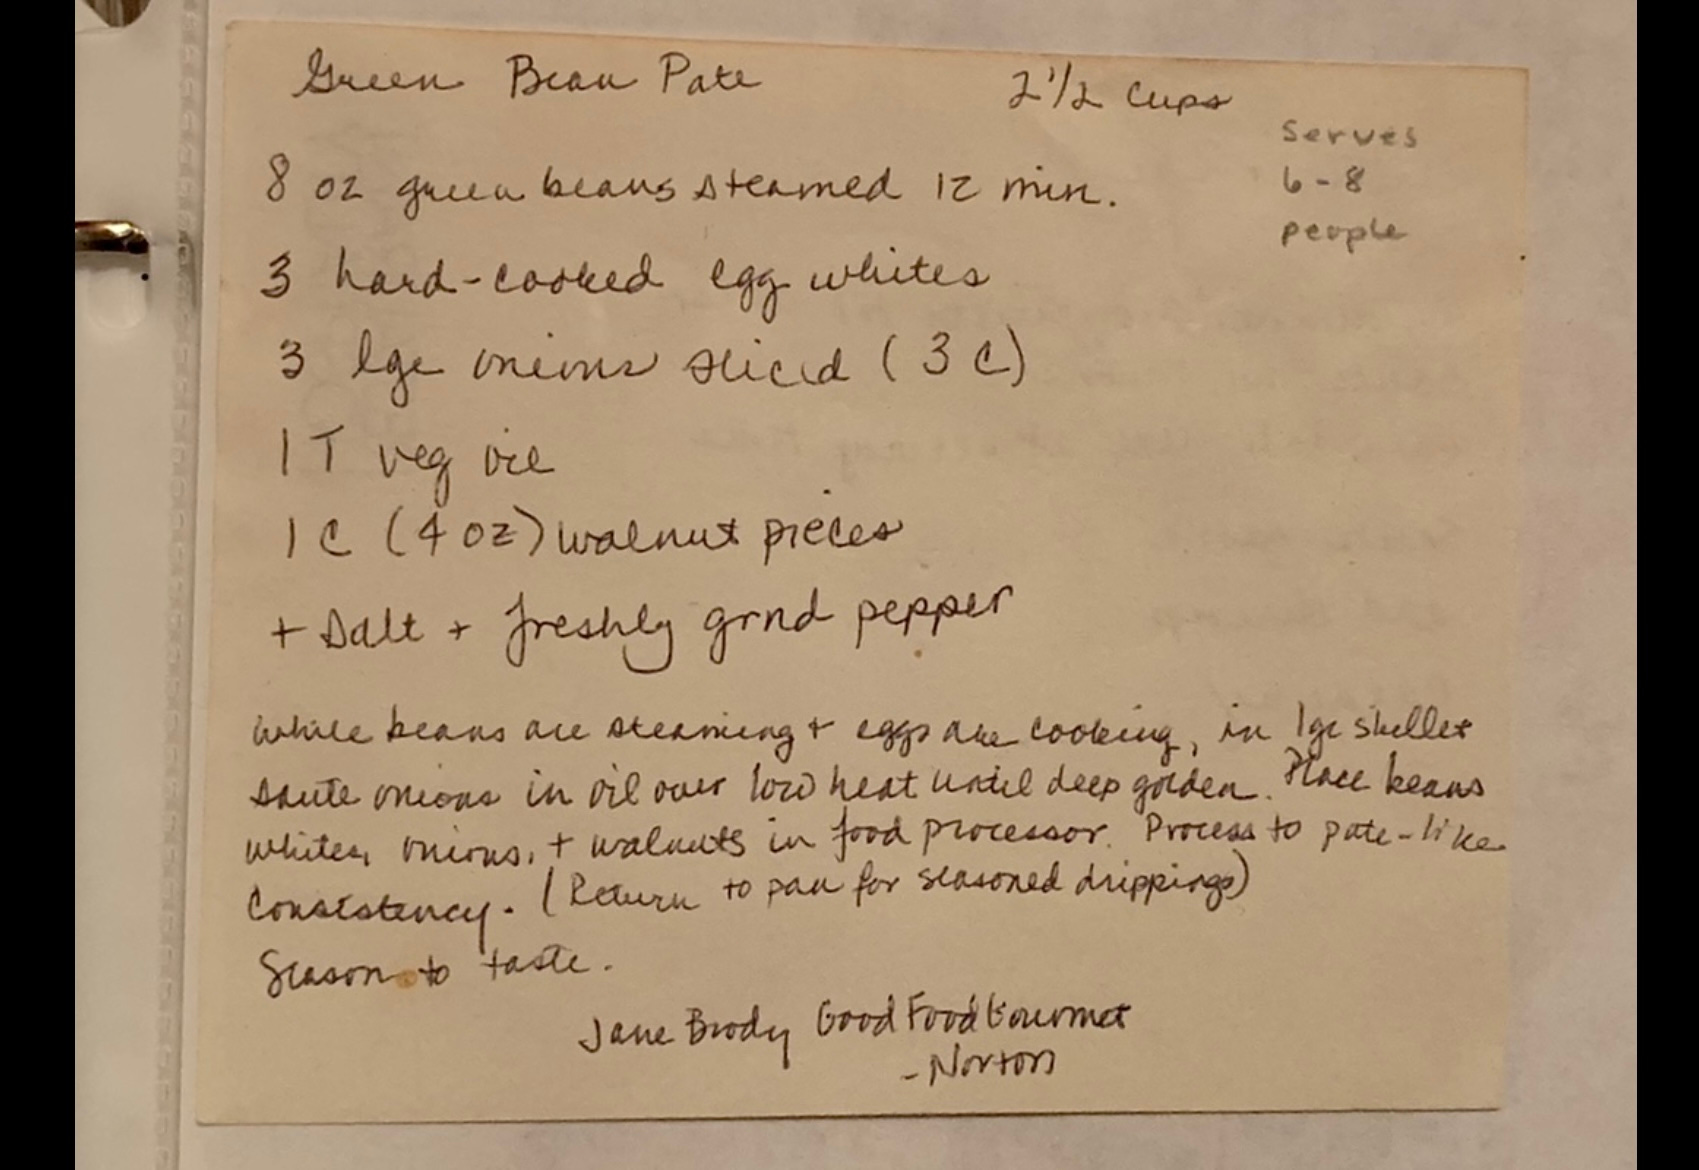 Green Bean Pate 2 1/2 Cups
Serves
6-8
people
8 oz green beans steamed 12 min.
3 hard-cooked egg whites
3 lge onions sliced (3 C)
1 T veg oil
1 C (4 oz) walnut pieces
+ Salt + freshly grnd pepper
While beans are steaming + eggs are cooking, in lge skillet
saute onions in oil over low heat until deep golden. Place beans
whites, onions, + walnuts in food processor. Process to pate-like
consistency. (Return to pan for seasoned drippings)
Season to taste.
Jane Brody Good Food Gourmet
- Norton